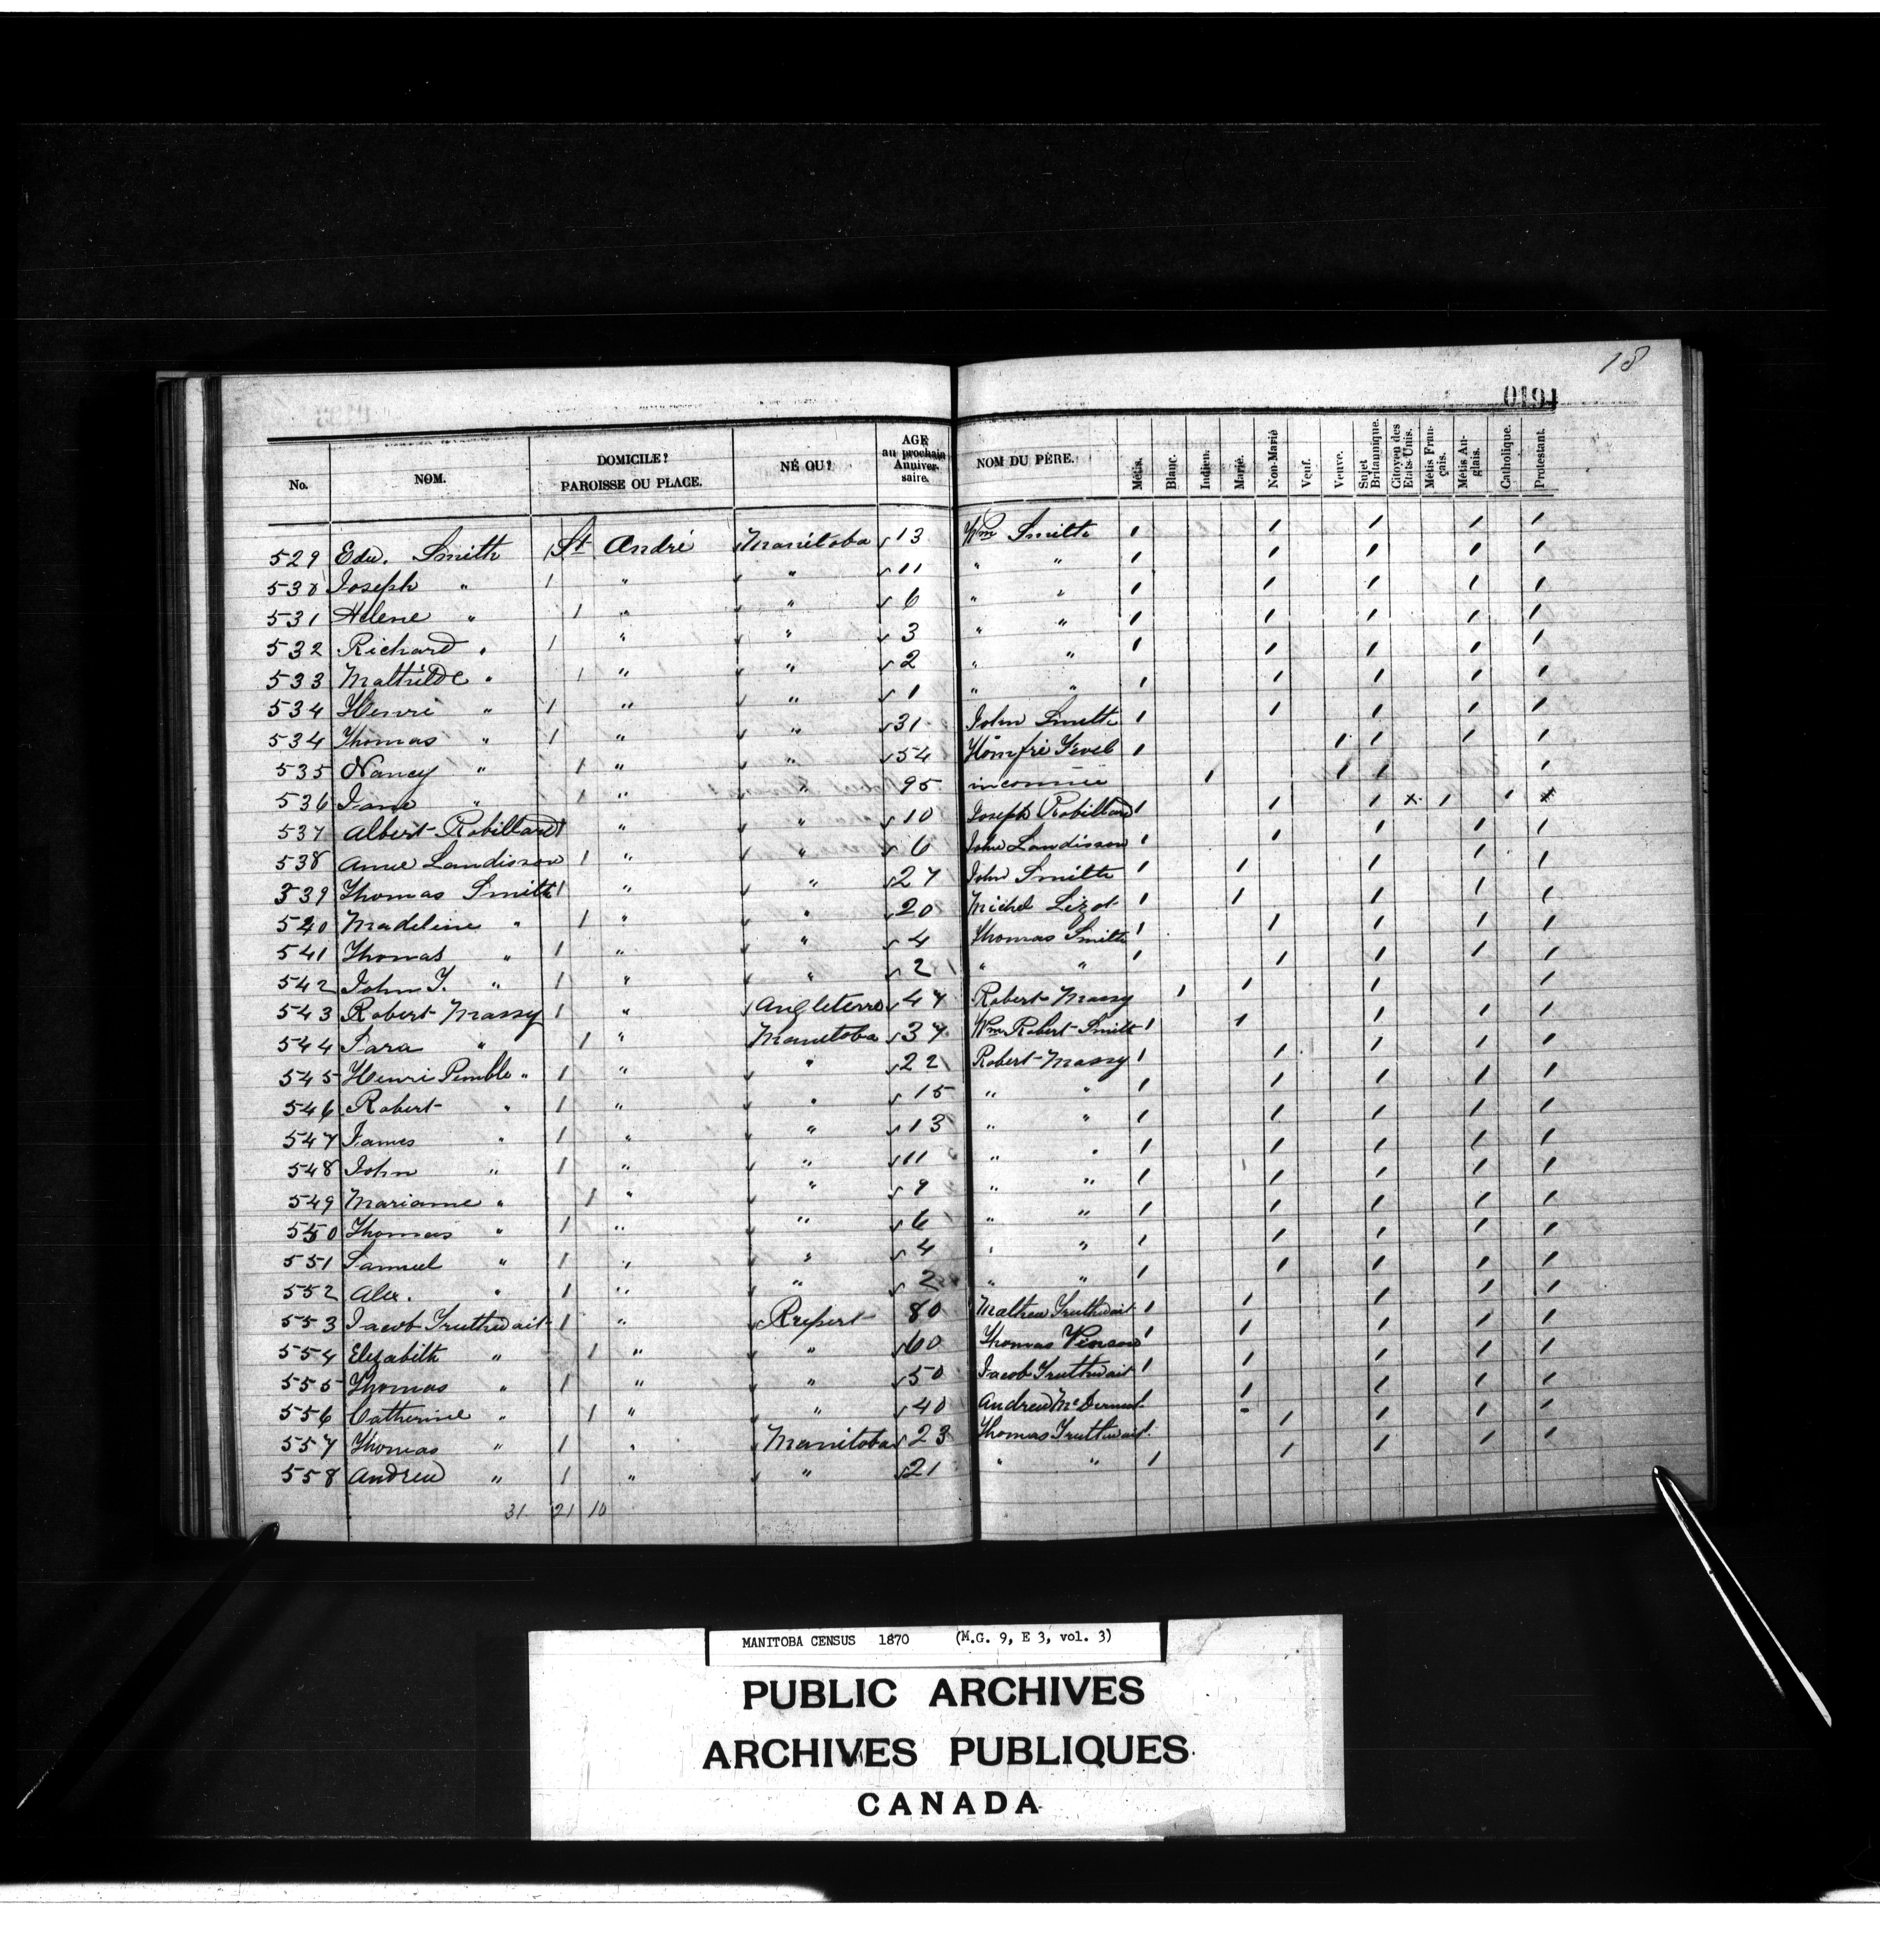 18
0191
No. NOM. DOMICILE? PAROISSE OU PLACE. NÉ OU? AGE au prochain Anniversaire. NOM DU PÈRE. Métis. Blanc. Indien. Marié. Non-Marié Veuf. Veuve. Sujet Britannique. Citoyen des Etats-Unis. Métis Français. Métis Anglais. Catholique. Protestant.
529 Edw. Smith St André Manitoba 13 Wm Smith
530 Joseph " 1 " " 11 " "
531 Helene " 1 " " 6 " "
532 Richard " 1 " " 3 " "
533 Mathilde " 1 " " 2 " "
534 Henri " 1 " " 1 " "
534 Thomas " 1 " " 31 John Smith
535 Nancy " 1 " " 54
536 Jane " 1 " " 95 inconnue
537 Albert Robillard 1 " " 10 Joseph Robillard
538 Anne Landisson 1 " " 6 John Landisson
539 Thomas Smith 1 " " 27 John Smith
540 Madeline " 1 " " 20 Michel Lizot
541 Thomas " 1 " " 4 Thomas Smith
542 John T. " 1 " " 2 " "
543 Robert Massy 1 " Angleterre 47 Robert Massy
544 Sara " 1 " Manitoba 37 Wm Robert Smith
545 Henri Pemble " 1 " " 22 Robert Massy
546 Robert " 1 " " 15 " "
547 James " 1 " " 13 " "
548 John " 1 " " 11 " "
549 Marianne " 1 " " 9 " "
550 Thomas " 1 " " 6 " "
551 Samuel " 1 " " 4 " "
552 Alex. " 1 " " 2 " "
553 Jacob Truthwait 1 " Rupert 80 Mathew Truthwait
554 Elizabeth " 1 " " 60 Thomas Vinson
555 Thomas " 1 " " 50 Jacob Truthwait
556 Catherine " 1 " " 40 Andrew McDermot
557 Thomas " 1 " Manitoba 23 Thomas Truthwait
558 Andrew " 1 " " 21 " "
31 21 10
MANITOBA CENSUS 1870 (M.G. 9, E 3, vol. 3)
PUBLIC ARCHIVES
ARCHIVES PUBLIQUES
CANADA